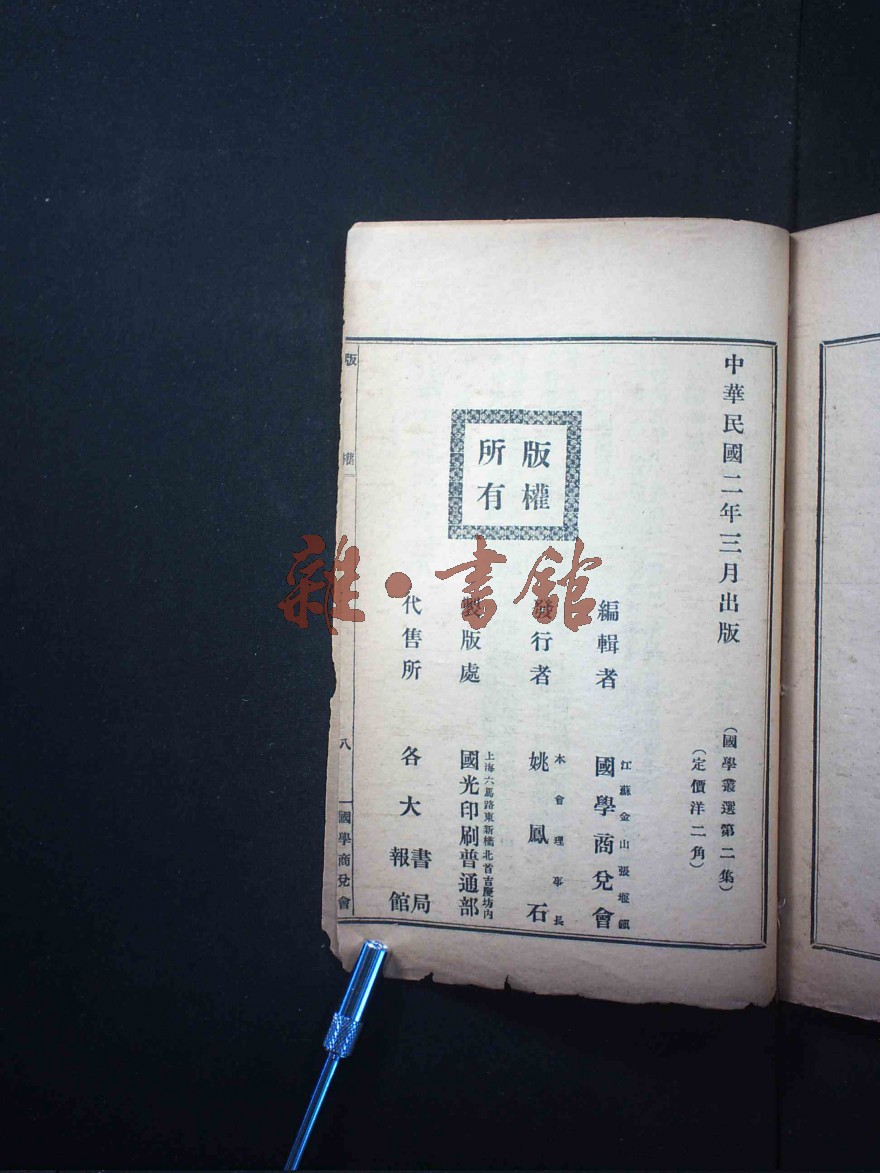 中華民國二年三月出版
(國學叢選第二集)
(定價洋二角)
版權
所有
編輯者
江蘇金山張堰鎮
國學商兌會
發行者
本會理事長
姚鳳石
製版處
上海六馬路東新橋北首吉慶坊內
國光印刷普通部
代售所
各大
書局
報館
版權
八
國學商兌會
雜·書館